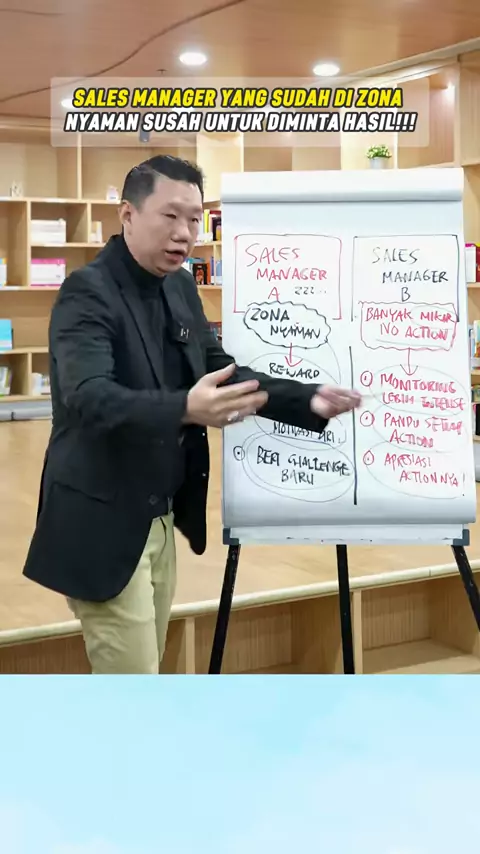 SALES MANAGER YANG SUDAH DI ZONA
NYAMAN SUSAH UNTUK DIMINTA HASIL!!!
SALES
MANAGER
A zzz...
ZONA
NYAMAN
REWARD
MOTIVASI
BERI CHALLENGE
BARU
SALES
MANAGER
B
BANYAK MIKIR
NO ACTION
MONITORING
LEBIH INTENSE
PANDU SETIAP
ACTION
APRESIASI
ACTIONNYA!